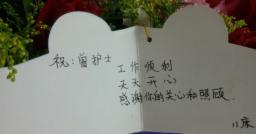 祝：曾护士
工作顺利
天天开心
感谢你的关心和照顾.
11床